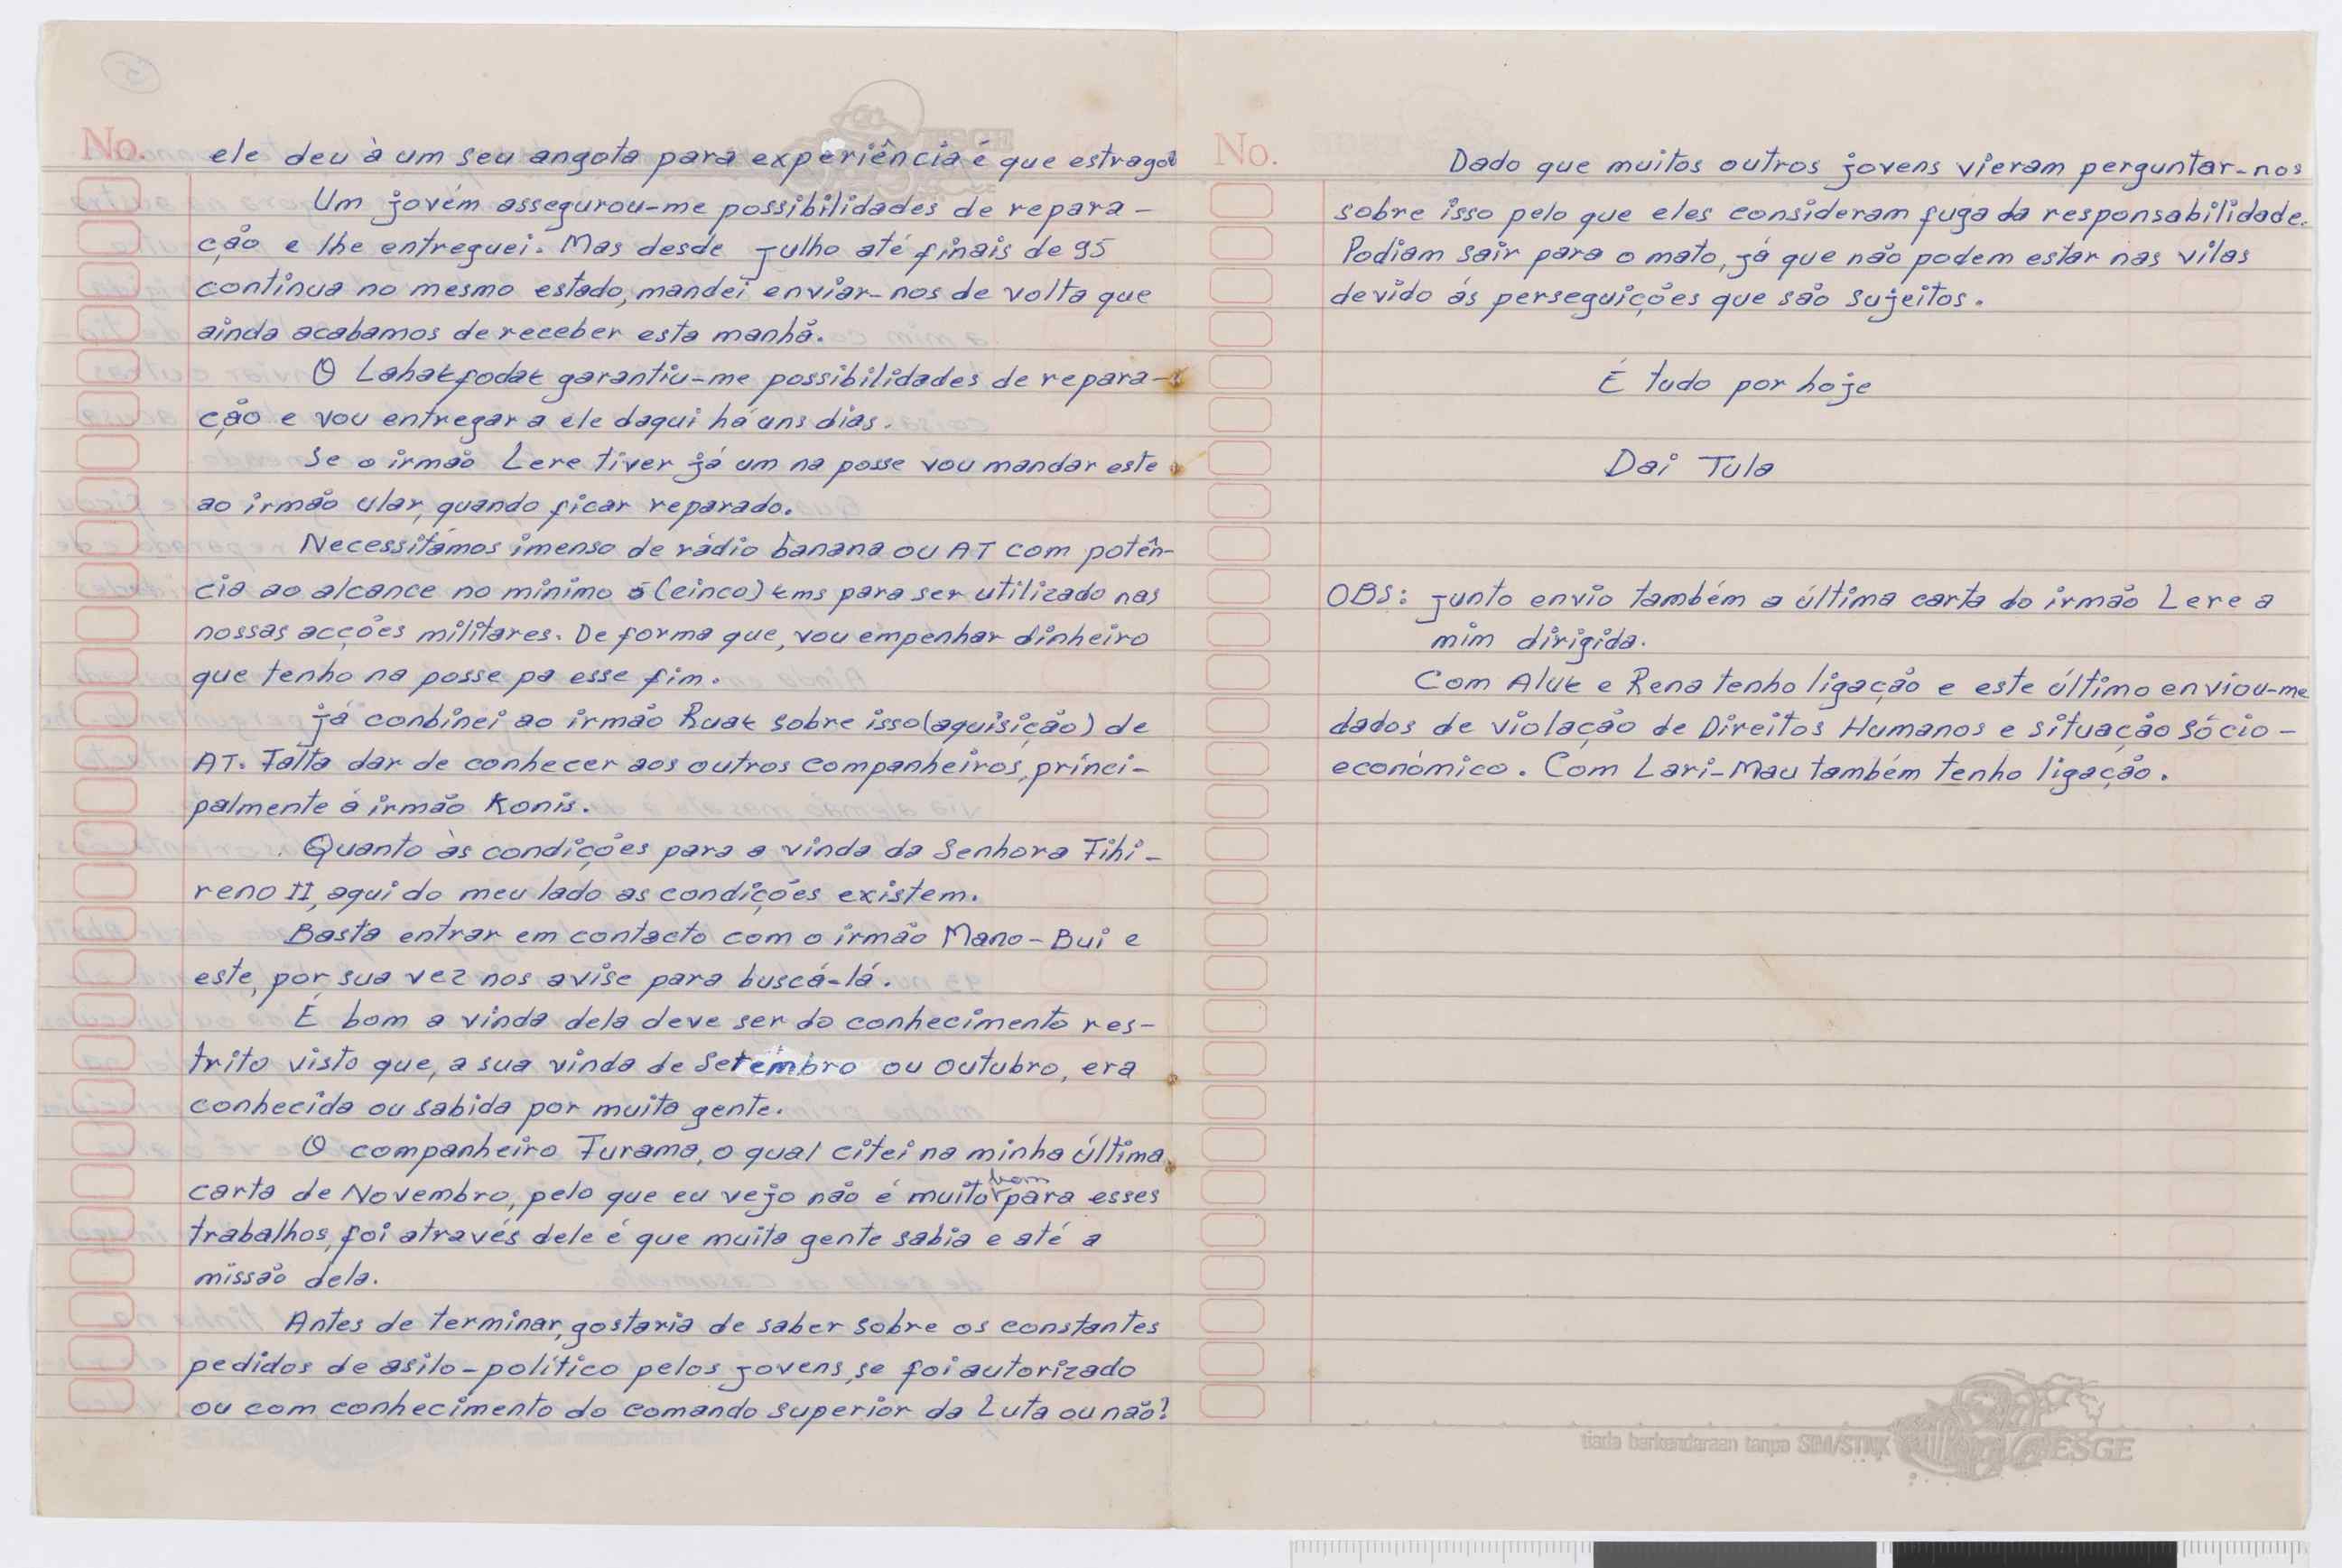 No.
ele deu à um seu angota para experiência é que estragou
Um jovém assegurou-me possibilidades de repara-
ção e lhe entreguei. Mas desde julho até finais de 95
continua no mesmo estado, mandei enviar-nos de volta que
ainda acabamos de receber esta manhã.
O Lahakfodak garantiu-me possibilidades de repara-
ção e vou entregar a ele daqui há uns dias.
Se o irmão Lere tiver já um na posse vou mandar este
ao irmão Ular, quando ficar reparado.
Necessitámos imenso de rádio banana ou AT com potên-
cia ao alcance no mínimo 5 (cinco) kms para ser utilizado nas
nossas acções militares. De forma que, vou empenhar dinheiro
que tenho na posse pa esse fim.
já conbinei ao irmão Ruak sobre isso (aquisição) de
AT. Falta dar de conhecer aos outros companheiros, princi-
palmente á irmão Konis.
Quanto às condições para a vinda da Senhora Fihi-
reno II, aqui do meu lado as condições existem.
Basta entrar em contacto com o irmão Mano-Bui e
este, por sua vez nos avise para buscá-lá.
É bom a vinda dela deve ser do conhecimento res-
trito visto que, a sua vinda de Setembro ou outubro, era
conhecida ou sabida por muita gente.
O companheiro Furama, o qual citei na minha última
carta de Novembro, pelo que eu vejo não é muito bom para esses
trabalhos, foi através dele é que muita gente sabia e até a
missão dela.
Antes de terminar, gostaria de saber sobre os constantes
pedidos de asilo-político pelos jovens, se foi autorizado
ou com conhecimento do comando superior da Luta ou não?
No.
Dado que muitos outros jovens vieram perguntar-nos
sobre isso pelo que eles consideram fuga da responsabilidade.
Podiam sair para o mato, já que não podem estar nas vilas
devido ás perseguições que são sujeitos.
É tudo por hoje
Dai Tula
OBS: junto envio também a última carta do irmão Lere a
mim dirigida.
Com Aluk e Rena tenho ligação e este último enviou-me
dados de violação de Direitos Humanos e situação sócio-
económico. Com Lari-Mau também tenho ligação.